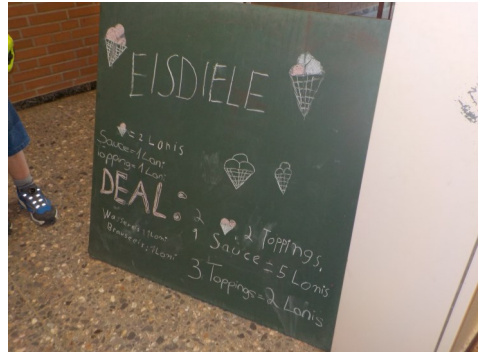 EISDIELE
= 2 Lonis
Sauce = 1 Loni
Topping = 1 Loni
DEAL:
2 2 Toppings,
1 Sauce = 5 Lonis
3 Toppings = 2 Lonis
Wassereis: 1Loni